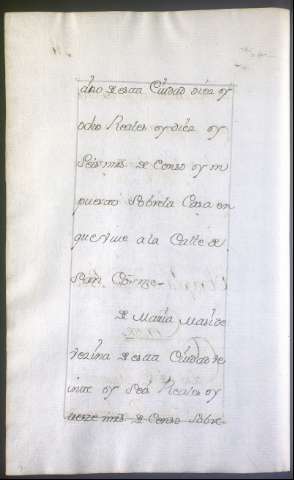 çino de esta Ciudad diez y
ocho Reales y diez y
Seis mrs. de Censo ym
puesto Sobrela Casa en
que vive a la Calle de
San
de Maria
vezina de esta Ciudad ve
inte y Seis Reales y
treze mrs. de Censo Sobre